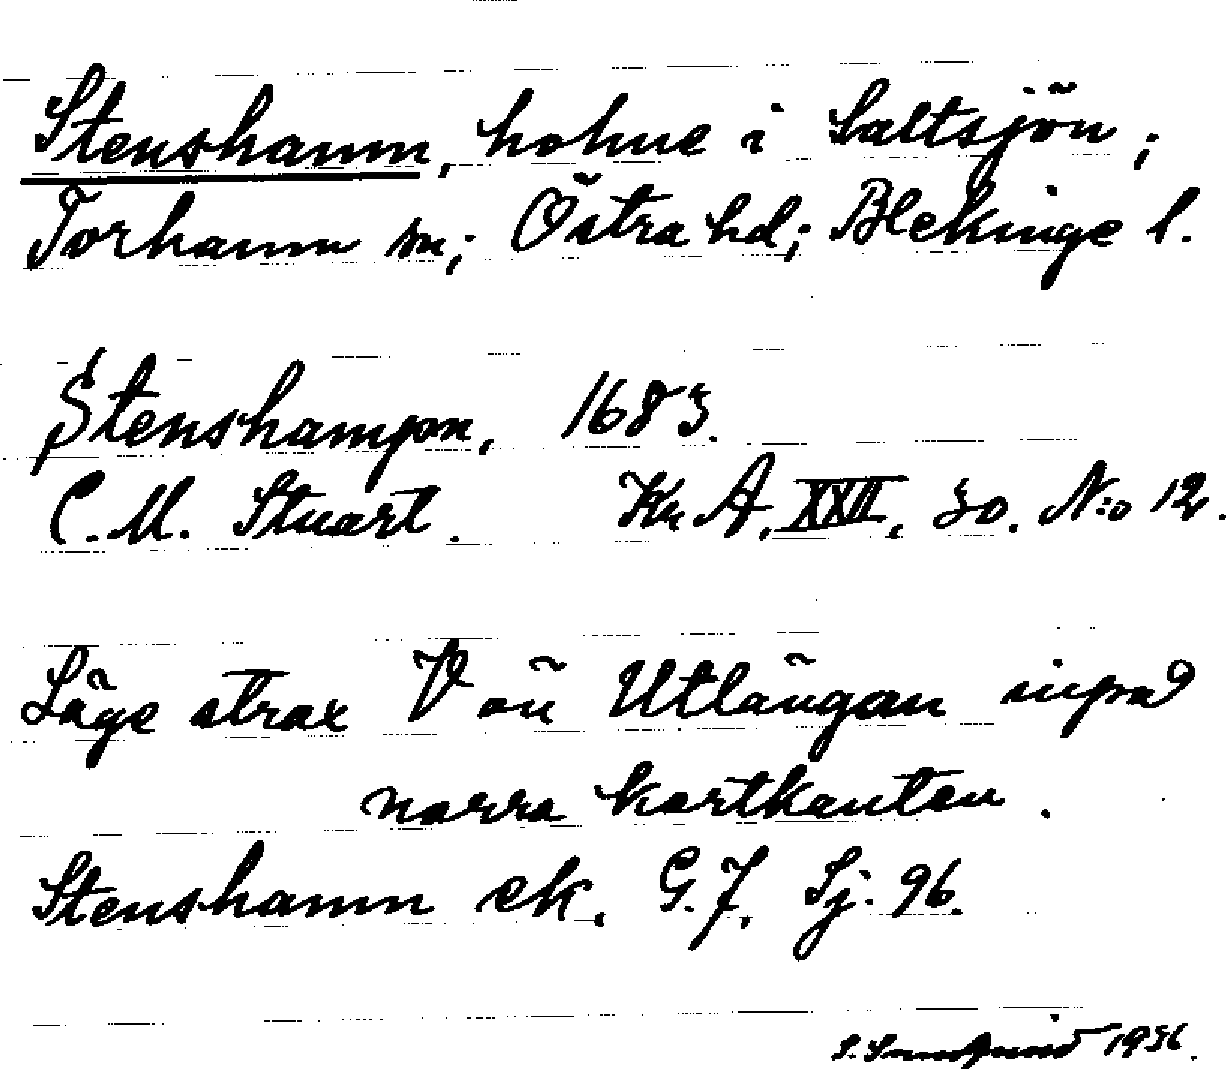 Stenshamn, holme i Saltsjön;
Torhamn sn; Östra hd; Blekinge l.
Stenshampn, 1683.
C. M. Stuart. Kr A, XXII, 30. N:o 12.
Läge strax V om Utlängan inpå
norra kartkanten.
Stenshamn ek. G.J. Sj. 96.
1936.